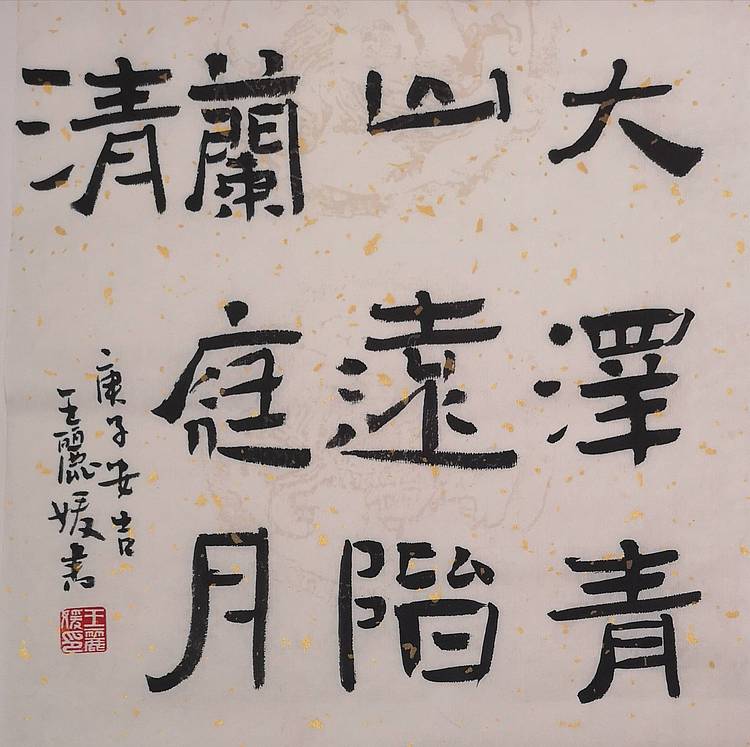 大澤青
山遠階
蘭庭月
清
庚子安吉
王麗媛書
王麗
媛印